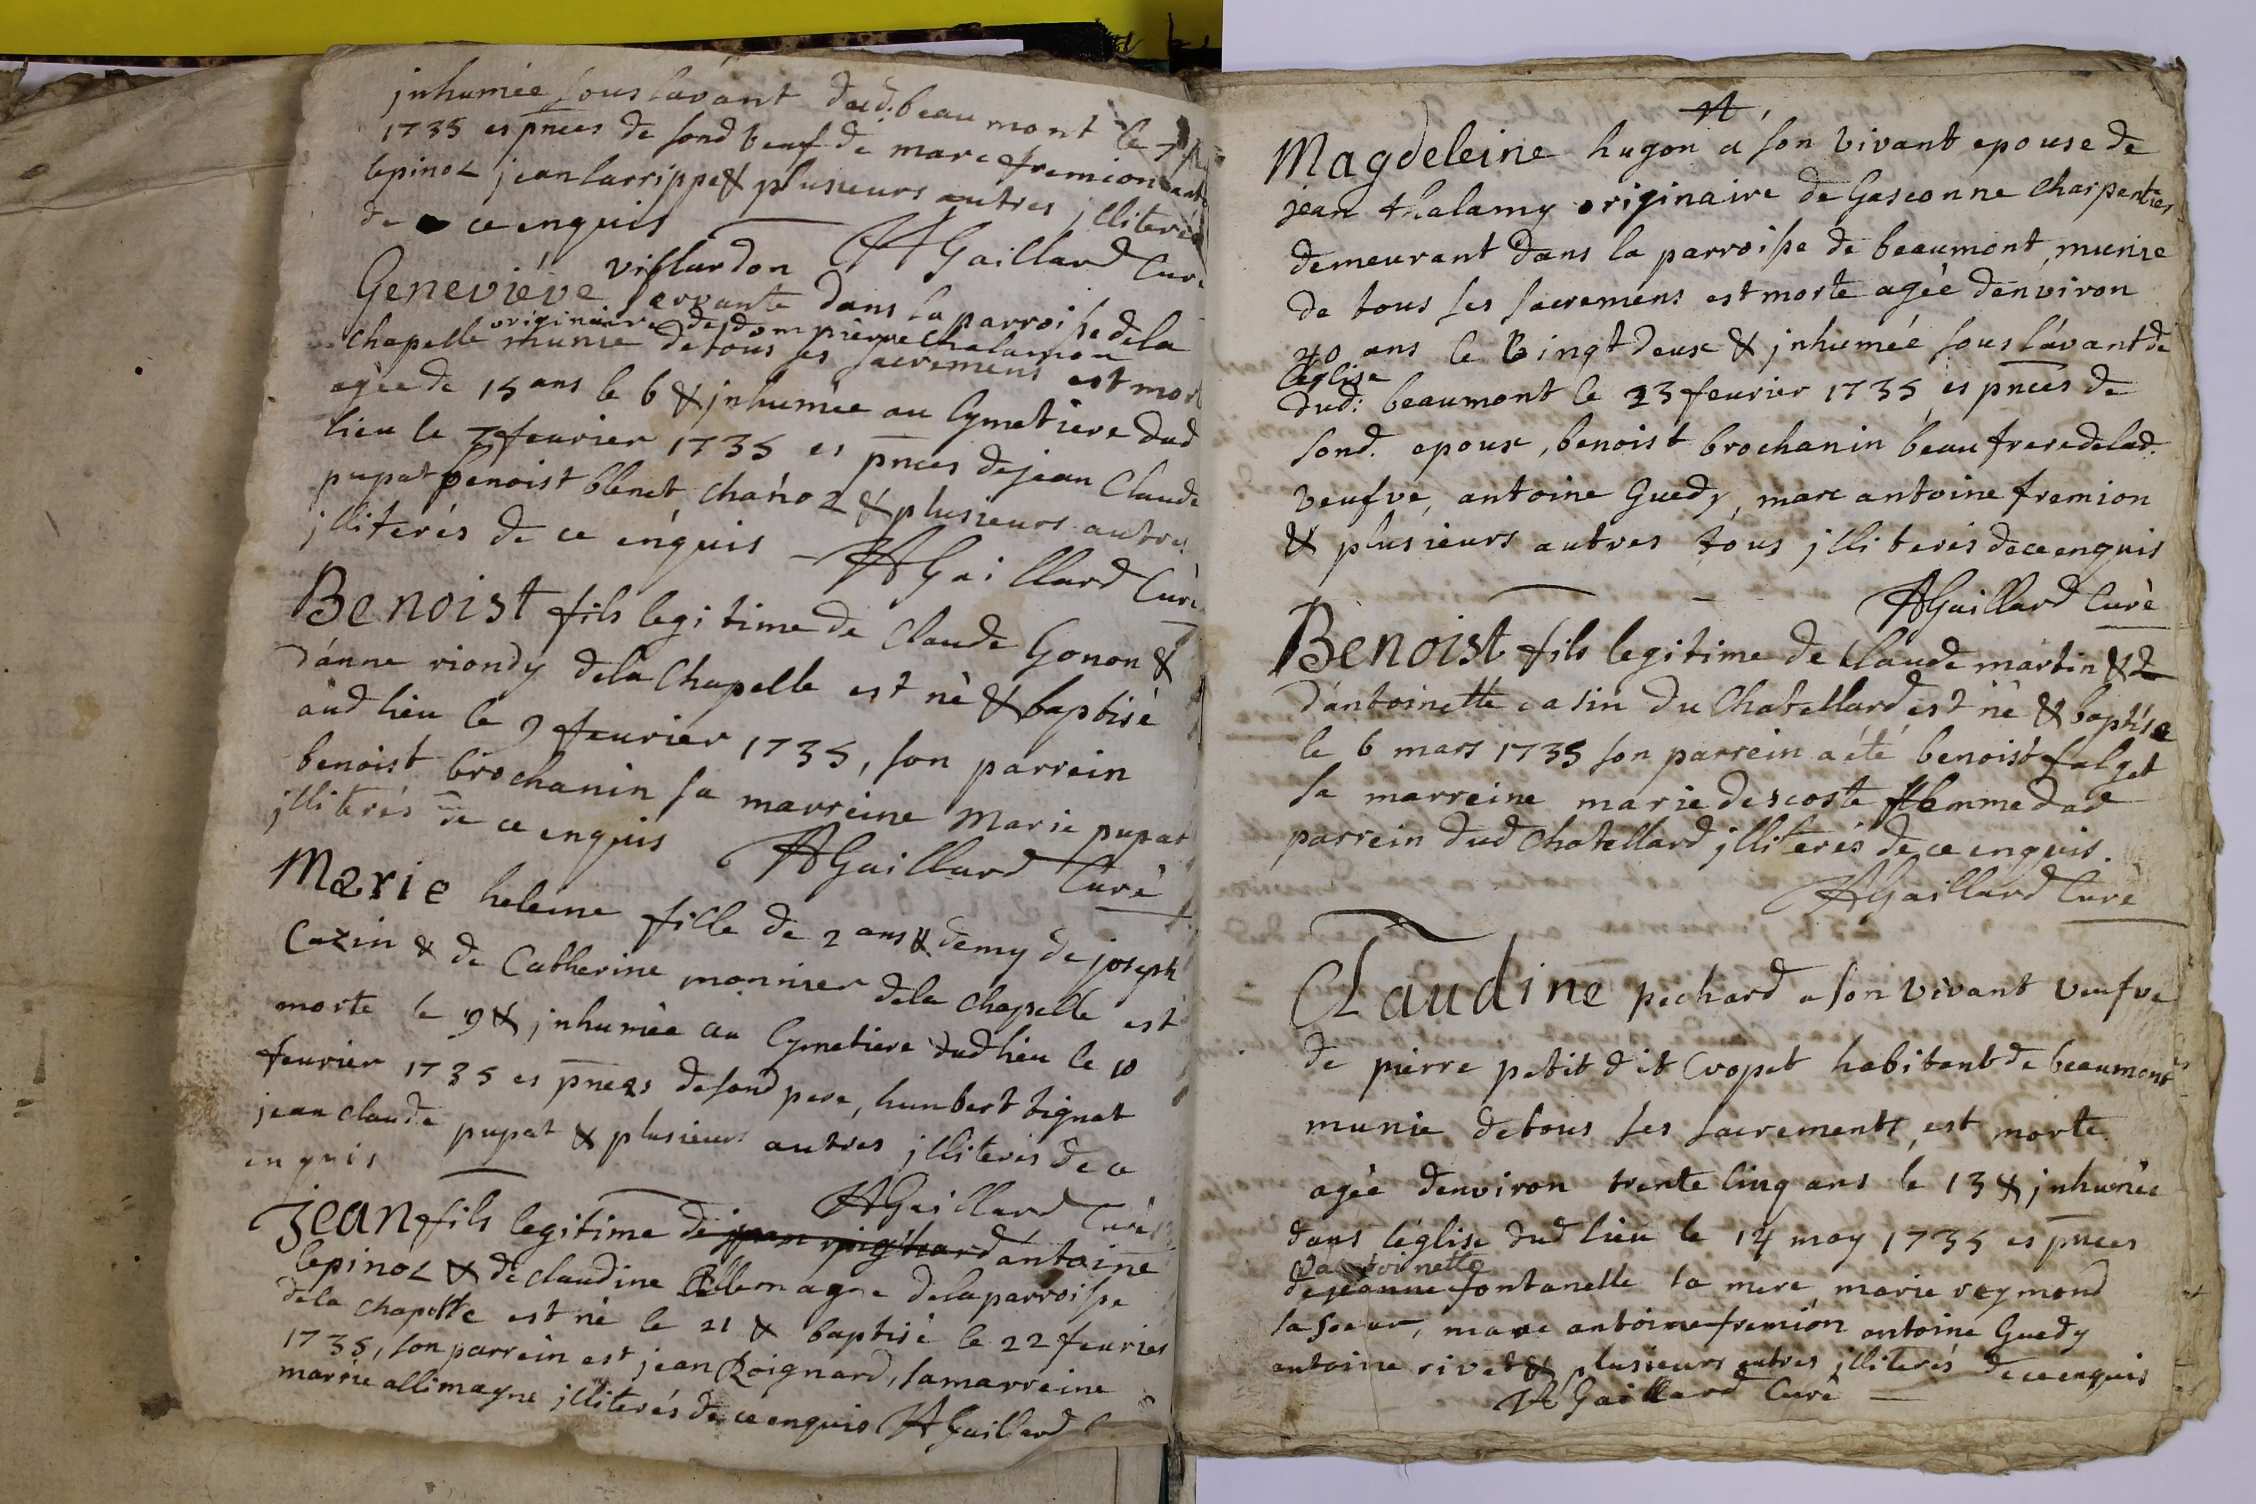 jnhumée sous l'avant dud. beaumont le 7
1735 es pnces de sond beuf de marc fremion
lepinoz jean larrippe & plusieurs autres jlliterés
de ce enquis AGaillard Curé
Geneviéve villardon servante dans la parroisse de la
originaire de dompierre Chalamon
chapelle munie de tous ses sacremens est mort
agée de 15 ans le 6 & jnhumée au Cymetiere dud
lieu le 7 feurier 1735 es pnces de jean Claude
pupat benoist blenet, chanoz & plusieurs autres
jlliterés de ce enquis AGaillard Curé
Benoist fils legitime de Claude Gonon &
d'anne riondy de la Chapelle est né & baptisé
aud lieu le 9 feurier 1735, son parrein
benoist brochanin sa marreine Marie pupat
jlliterés de ce enquis AGaillard Curé
Marie heleine fille de 2 ans & demy de joseph
Cazin & de Catherine monnier de la chapelle est
morte le 9 & jnhumée au Cymetiere dud lieu le 10
feurier 1735 es pnces de sond pere, humbert tignat
jean claude pupat & plusieurs autres jlliterés de ce
enquis AGaillard Curé
Jean fils legitime de d'antoine
lepinoz & de claudine allemagne de la parroisse
de la chapelle est né le 21 & baptisé le 22 feurier
1735, son parrein est jean Roignard, sa marreine
marie allimagne jlliterés de ce enquis AGaillard C
Magdeleine hugon a son vivant epouse de
jean thalamy originaire de Gasconne Charpentier
demeurant dans la parroisse de beaumont, munie
de tous ses sacremens est morte agée d'environ
40 ans le Vingt deux & jnhumée sous l'avant de
l'église
dud: beaumont le 23 feurier 1735 es pnces de
sond. epoux, benoist brochanin beau frere de lad.
veufve, antoine Guedy, marc antoine fremion
& plusieurs autres tous jlliterés de ce enquis
AGaillard Curé
Benoist fils legitime de Claude martin &
d'antoinette casin du Chatellard est né & baptisé
le 6 mars 1735 son parrein a été benoist falget
sa marreine marie descoste femme dud
parrein dud Chatellard jlliterés de ce enquis.
AGaillard Curé
Claudine pechard a son vivant veufve
de pierre petit dit Cropet habitant de beaumont
munie de tous ses sacrements, est morte
agée d'environ trente Cinq ans le 13 & jnhumée
dans l'église dud lieu le 14 may 1735 es pnces
d'antoinette
de jeanne fontanelle sa mere, marie reymond
sa soeur, marc antoine fremion antoine Guedy
antoine rivet & plusieurs autres jlliterés de ce enquis
AGaillard Curé